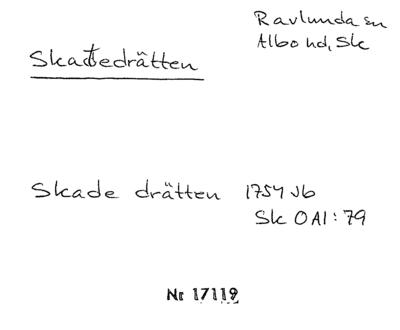 Ravlunda sn
Albo hd, Sk
Skadedrätten
Skade drätten 1754 Jb
Sk OAI: 79
Nr 17119